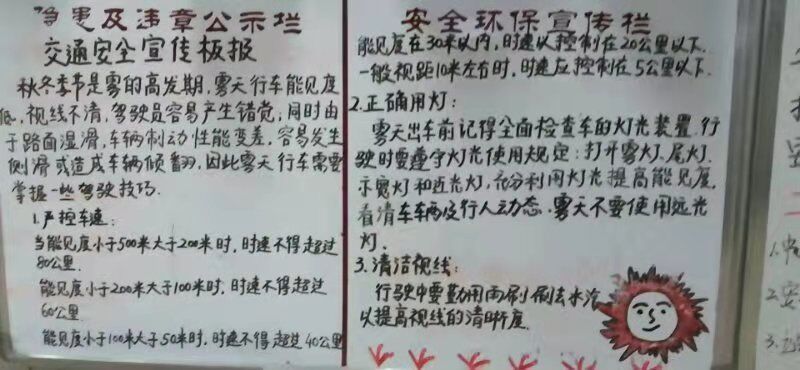 隐患及违章公示栏
交通安全宣传板报
秋冬季节是雾的高发期，雾天行车能见度
低，视线不清，驾驶员容易产生错觉；同时由
于路面湿滑，车辆制动性能变差，容易发生
侧滑或造成车辆倾翻，因此雾天行车需要
掌握一些驾驶技巧.
1.严控车速：
当能见度小于500米大于200米时，时速不得超过
80公里.
能见度小于200米大于100米时，时速不得超过
60公里
能见度小于100米大于50米时，时速不得超过40公里
安全环保宣传栏
能见度在30米以内，时速以控制在20公里以下.
一般视距10米左右时，时速应控制在5公里以下.
2.正确用灯：
雾天出车前记得全面检查车的灯光装置.行
驶时要遵守灯光使用规定：打开雾灯.尾灯.
示宽灯和近光灯，充分利用灯光提高能见度，
看清车车辆及行人动态.雾天不要使用远光
灯.
3.清洁视线：
行驶中要勤用雨刷刷去水汽
以提高视线的清晰度.